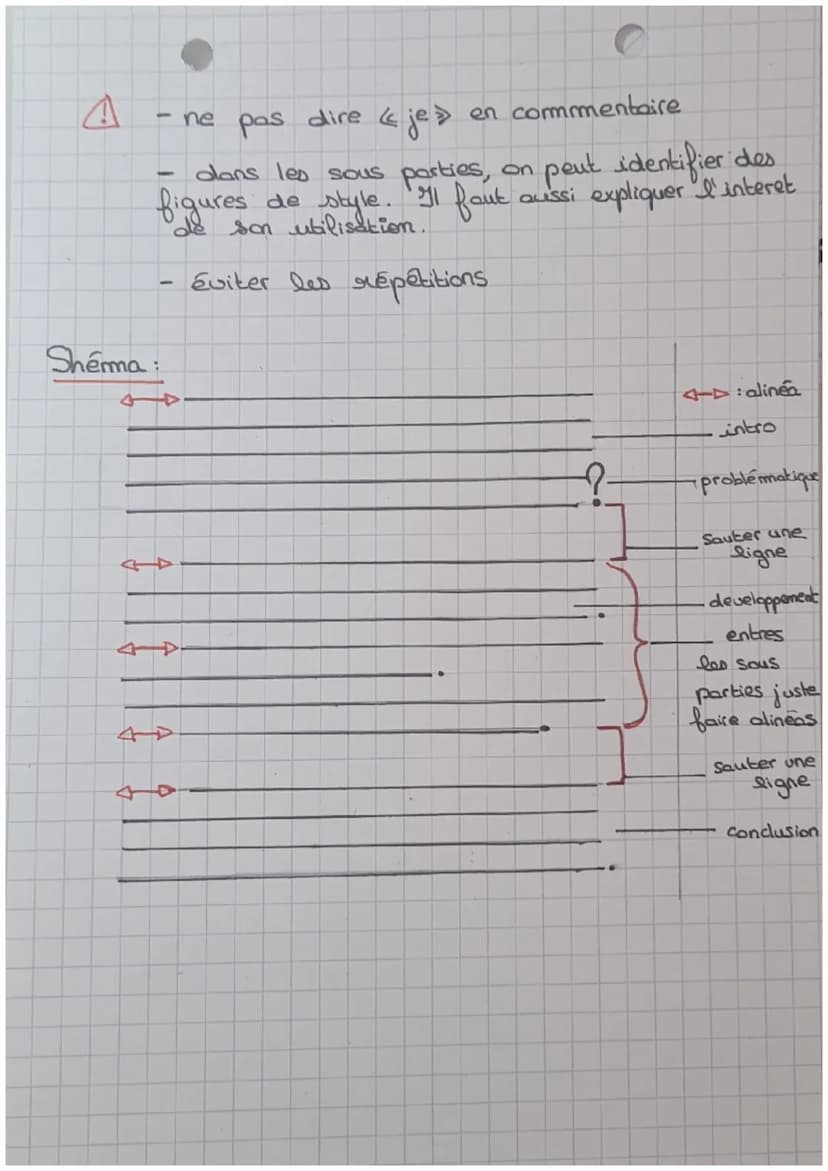 - ne pas dire « je » en commmentaire
- dans les sous parties, on peut identifier des
figures de style. Il faut aussi expliquer l'interet
de son utilisation.
- éviter les répétitions
Shéma :
: alinéa
intro
?
problématique
Sauter une
ligne
developpement
entres
les sous
parties juste
faire alinéas
Sauter une
ligne
conclusion